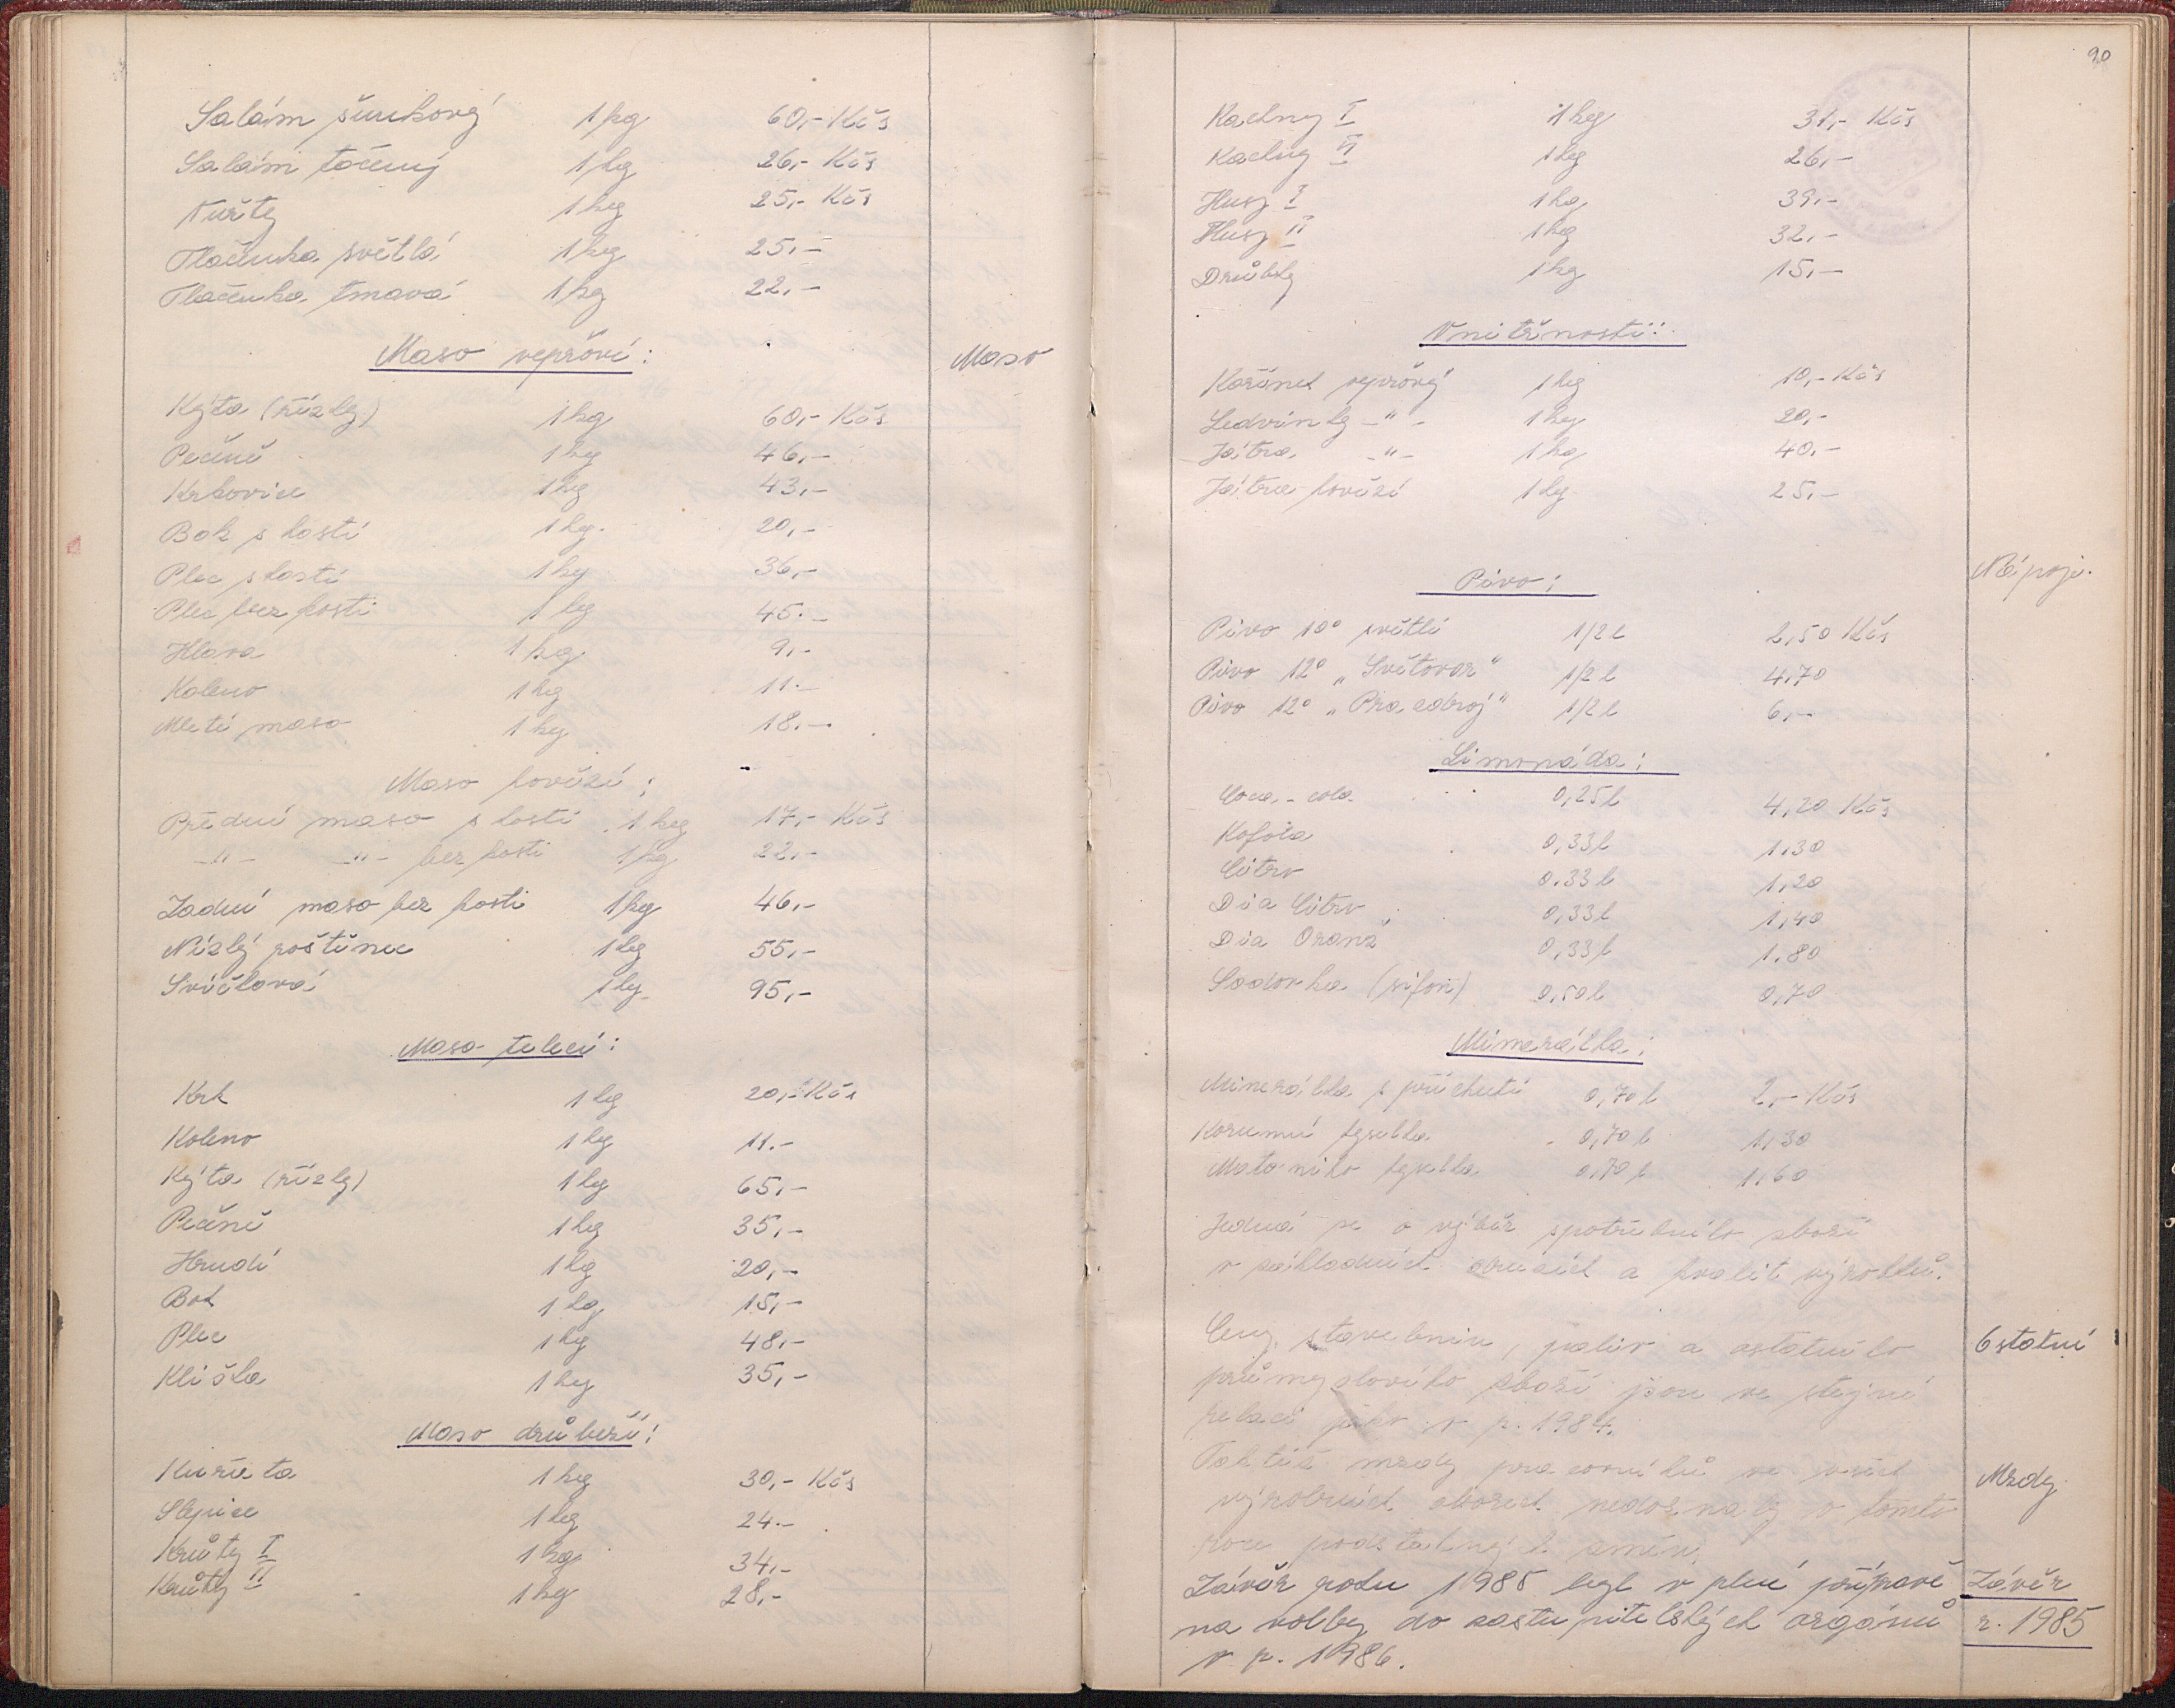 Salám šunkový 1 kg 60,- Kčs
Salám točený 1 kg 26,- Kčs
Vuřty 1 kg 25,- Kčs
Tlačenka světlá 1 kg 25,-
Tlačenka tmavá 1 kg 22,-
Maso vepřové:
Maso
Kýta (řízky) 1 kg 60,- Kčs
Pečeně 1 kg 46,-
Krkovice 1 kg 43,-
Bok s kostí 1 kg. 20,-
Plec s kostí 1 kg 36,-
Plec bez kosti 1 kg 45.-
Hlava 1 kg 9,-
Koleno 1 kg 11.-
Mleté maso 1 kg 18.-
Maso hovězí:
Přední maso s kostí 1 kg 17,- Kčs
-"- -"- bez kosti 1 kg 22,-
Zadní maso bez kosti 1 kg 46,-
Nízký roštěnec 1 kg 55,-
Svíčková 1 kg 95,-
Maso telecí:
Krk 1 kg 20,- Kčs
Koleno 1 kg 11.-
Kýta (řízky) 1 kg 65,-
Pečeně 1 kg 35,-
Hrudí 1 kg 20,-
Bok 1 kg 15,-
Plec 1 kg 48,-
Kližka 1 kg 35,-
Maso drůbeží:
Kuřata 1 kg 30,- Kčs
Slepice 1 kg 24.-
Krůty I 1 kg 34,-
Krůty II 1 kg 28,-
90
Kachny I 1 kg 31,- Kčs
Kachny II 1 kg 26,-
Husy I 1 kg 39,-
Husy II 1 kg 32,-
Drůbky 1 kg 15,-
Vnitřnosti:
Kořínek vepřový 1 kg 10,- Kčs
Ledvinky -"- 1 kg 20,-
Játra -"- 1 kg 40,-
Játra hovězí 1 kg 25,-
Nápoje.
Pivo:
Pivo 10° světlé 1/2 l 2,50 Kčs
Pivo 12° „Světovar" 1/2 l 4,70
Pivo 12° „Prazdroj" 1/2 l 6,-
Limonáda:
Coca-cola 0,25 l 4,20 Kčs
Kofola 0,33 l 1,30
Citro 0,33 l 1,20
Dia Citro 0,33 l 1,40
Dia Oranž 0,33 l 1.80
Sodovka (sifon) 0,50 l 0,70
Minerálka:
Minerálka s příchutí 0,70 l 2,- Kčs
Korunní kyselka 0,70 l 1,30
Matoniho kyselka 0,70 l 1,60
Jedná se o výběr spotřebního zboží
v základních druzích a kvalit výrobků.
Ceny stavebnin, paliv a ostatního
Ostatní
průmyslového zboží jsou ve stejné
relaci jako v r. 1984.
Taktéž mzdy pracovníků ve všech
Mzdy
výrobních oborech nedoznaly v tomto
roce podstatných změn.
Závěr roku 1985 byl v plné přípravě
Závěr
na volby do zastupitelských orgánů
r. 1985
v r. 1986.